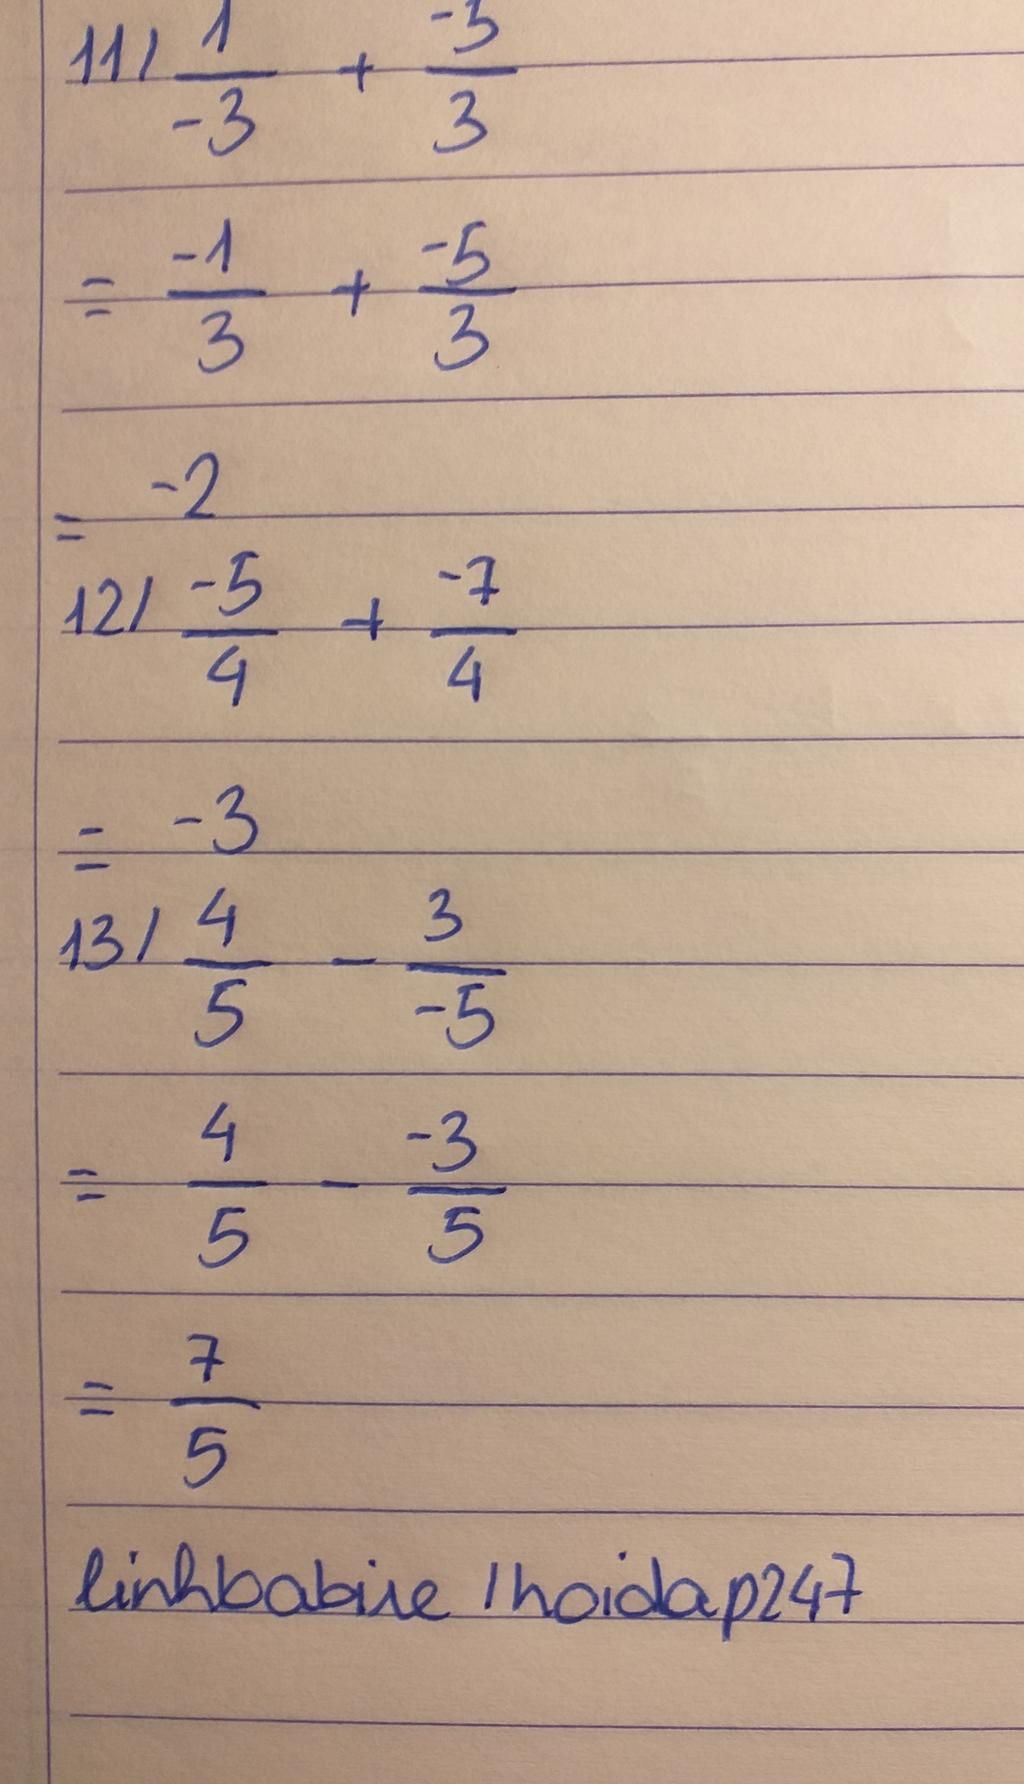 11/ 1/-3 + -5/3
= -1/3 + -5/3
= -2
12/ -5/4 + -7/4
= -3
13/ 4/5 - 3/-5
= 4/5 - -3/5
= 7/5
linhbabie /hoidap247